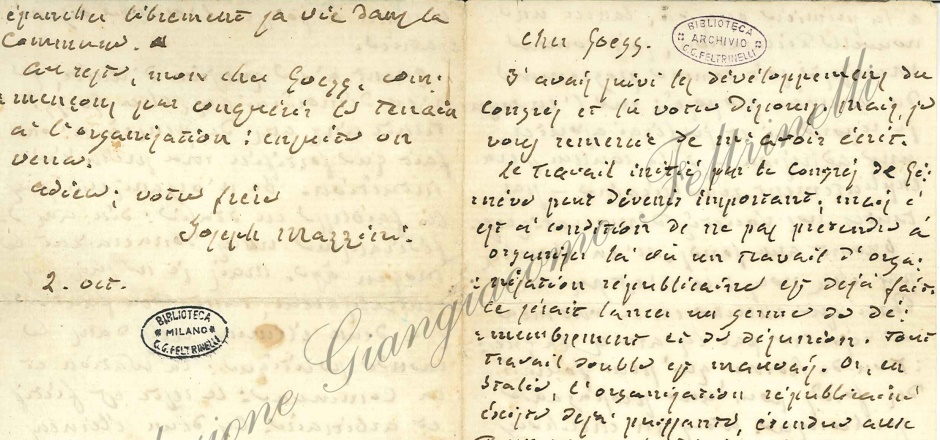 épancher librement sa vie dans la
Commune.
Au reste, mon cher Goegg, com-
mençons par conquérir le terrain
à l'organisation : ensuite on
verra.
adieu ; votre frère
Joseph Mazzini.
2. oct.
BIBLIOTECA
MILANO
G.G. FELTRINELLI
Cher Goegg.
BIBLIOTECA
ARCHIVIO
G.G. FELTRINELLI
J'avais suivi les développemens du
Congrès et lu votre discours. Mais, je
vous remercie de m'avoir écrit.
Le travail initié par le Congrès de Ge-
nève peut devenir important, mais c'
est à condition de ne pas prétendre à
organiser là où un travail d'orga-
nisation républicaine est déjà fait.
Ce serait lancer un germe de dé-
membrement et de désunion. Tout
travail double est mauvais. Or, en
Italie, l'organisation républicaine
existe déjà puissante, étendue aux
Fondazione Giangiacomo Feltrinelli